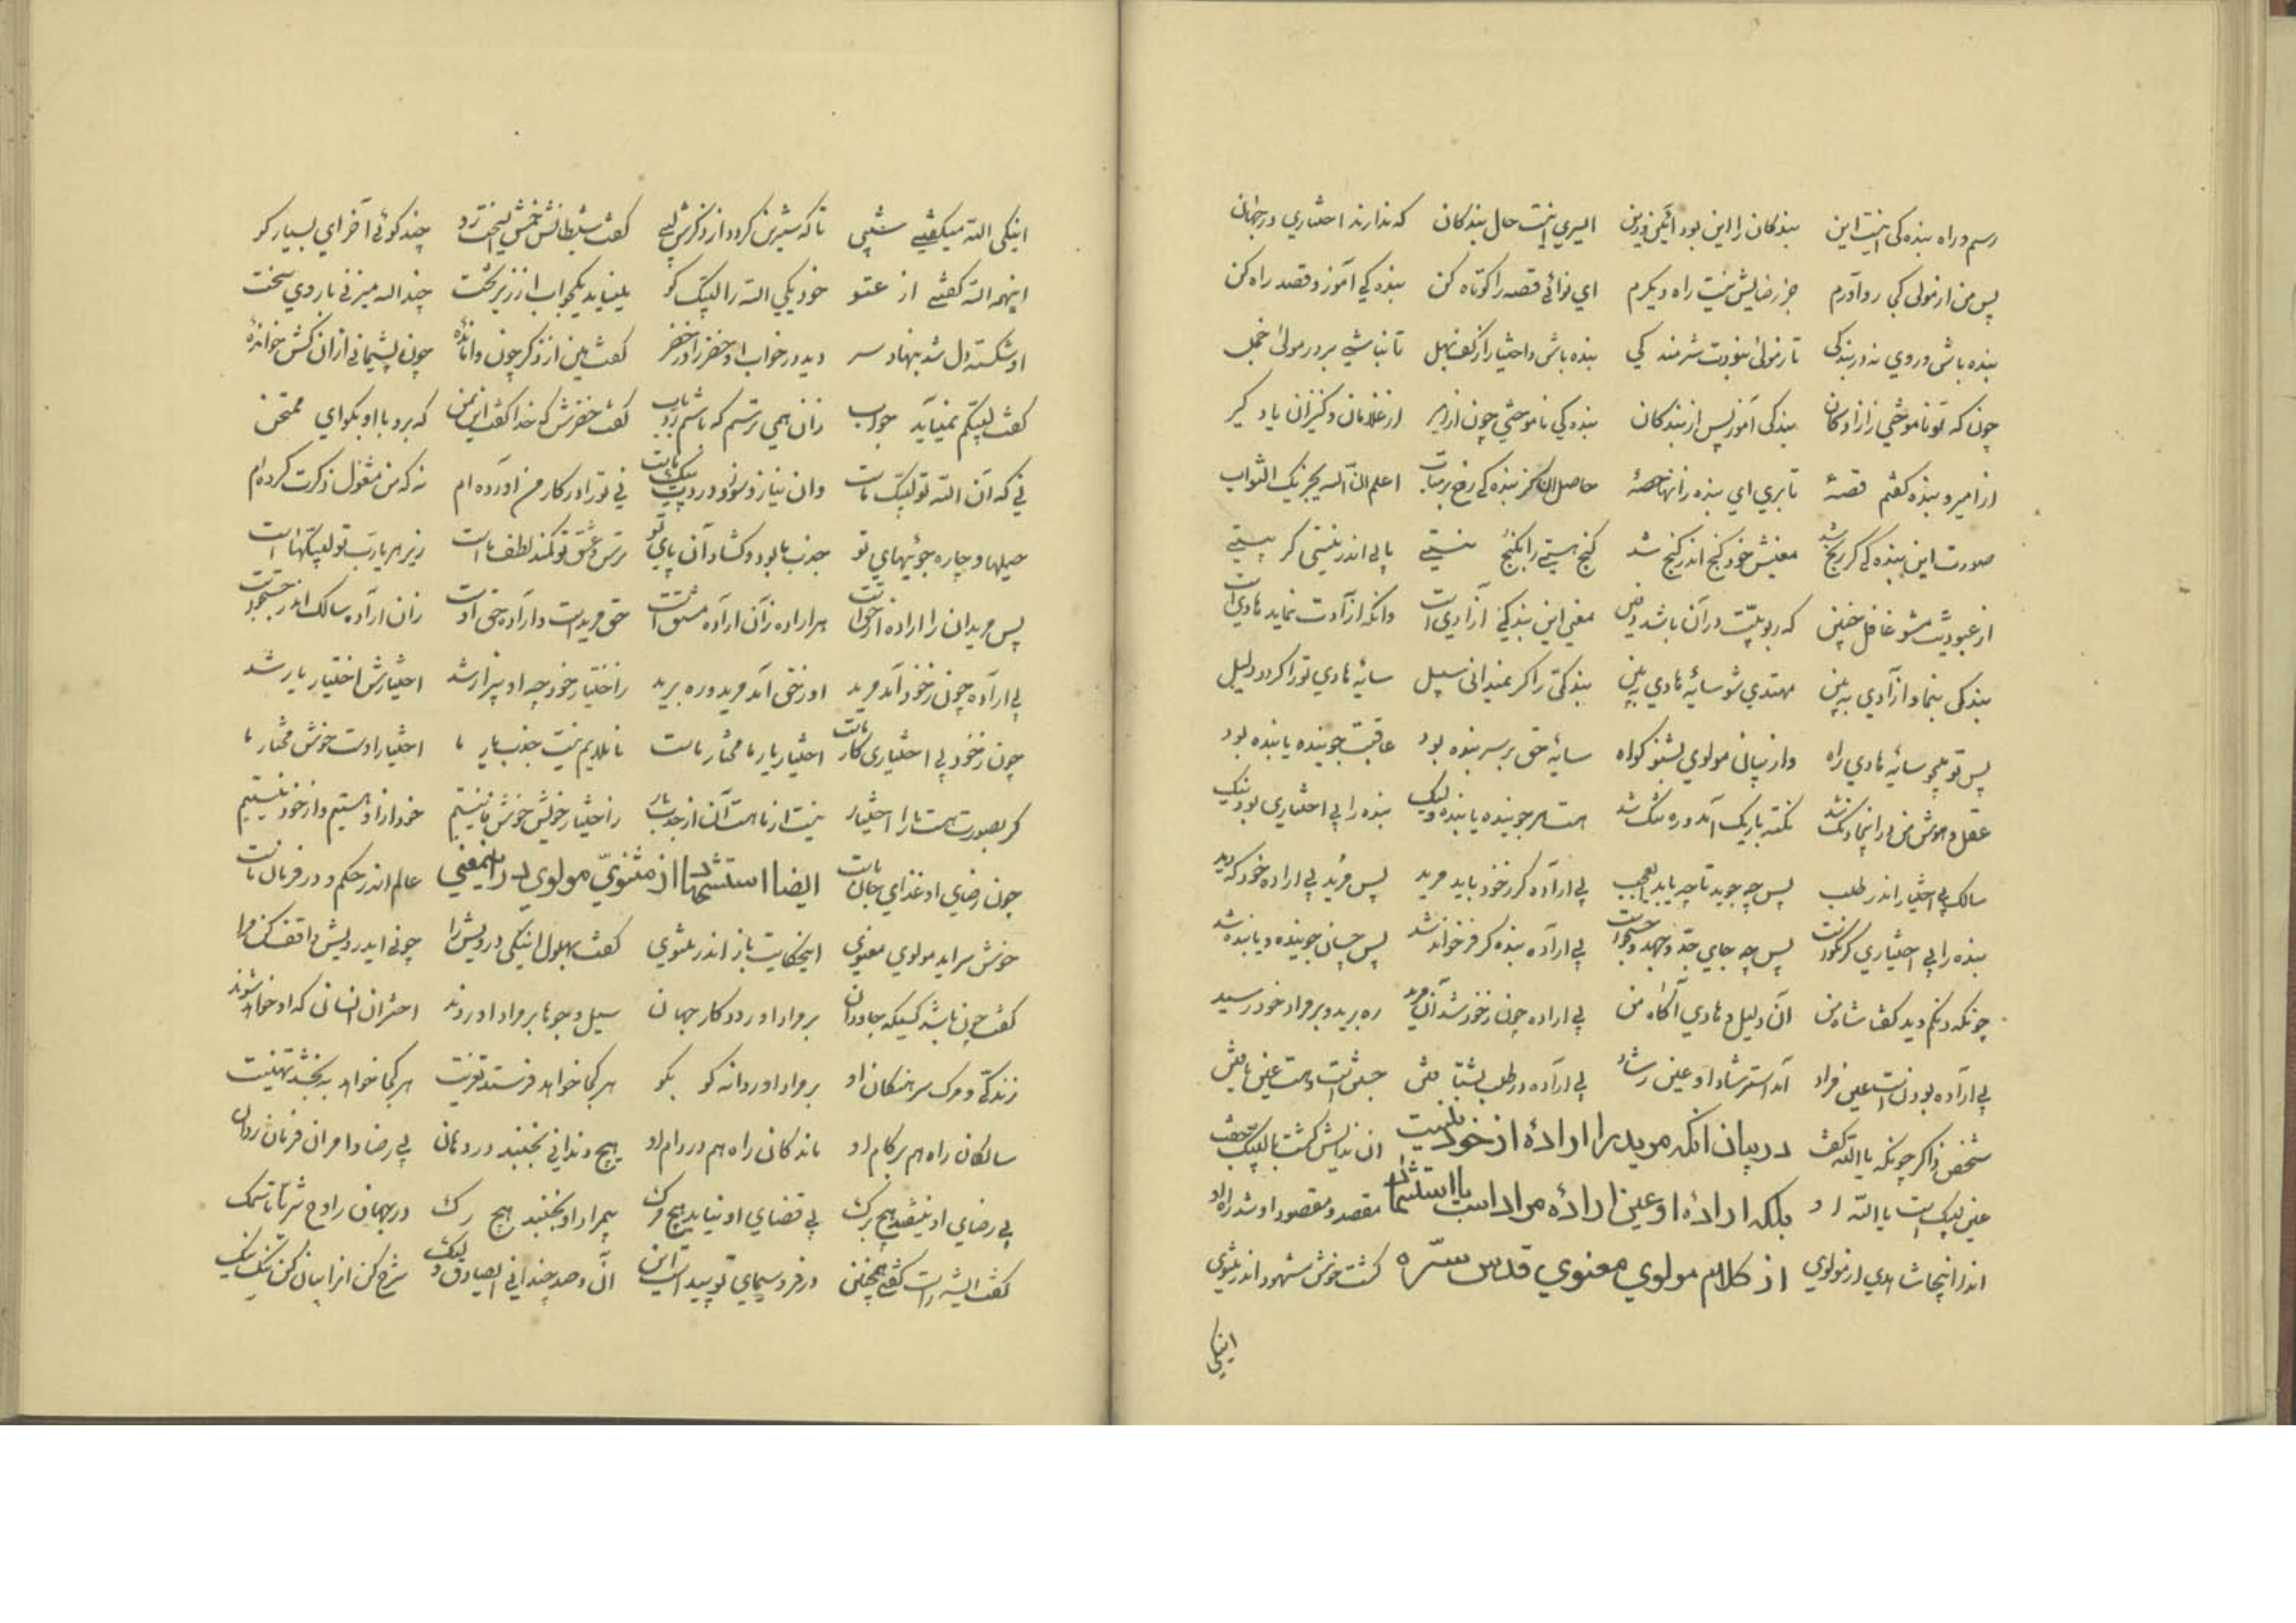 رسم و راه بنده کی اینست این بندکان را این بود آئین و دین ای سری اینست حال بندکان که ندارند اختیاری در جهان
پس من از مولی کجا رو آورم جز رضایش نیست راه دیکرم ای نوائی قصه را کوتاه کن بنده کی آموز و قصد راه کن
بنده باش و روی نه در بندکی تا ز مولی نبودت شرمندکی بنده باش و اختیار از کف بهل تا نباشی بر در مولی خجل
چون که تو ناموختی ز آزادکان بندکی آموز پس از بندکان بنده کی ناموختی چون از امیر از غلامان و کنیزان یاد کیر
از امیر و بنده کفتم قصهٔ تا بری ای بنده زانها حصهٔ حاصل بنده کی رخ بر متاب اعلم ان الله یجزیک الثواب
صورت این بنده کی کر رنج شد معنیش خود کنج اندر کنج شد کنج هستی را بکنج نیستی یابی اندر نیستی کر بیستی
از عبودیت مشو غافل چنین که ربوبیت در آن باشد دفین معنی این بندکی آزادی است وانکه آزادت نماید هادی است
بندکی بنما و آزادی ببین مهتدی شو سایهٔ هادی ببین بندکی را کر نمیدانی سبیل سایهٔ هادی ترا کردد دلیل
پس تو میجو سایهٔ هادی راه واز بیان مولوی بشنو کواه سایهٔ حق بر سر بنده بود عاقبت جوینده یابنده بود
عقل و هوش من در اینجا دنک شد نکته باریک آمد و ره تنک شد هست هر جوینده یابنده ولیک بنده را بی اختیاری بود نیک
سالک بی اختیار اندر طلب پس چه جوید تا چه یابد العجب بی اراده کر ز خود باید مرید پس مرید بی اراده خود که دید
بنده را بی اختیاری کر نکوست پس چه جای جد و جهد و جستجوست بی اراده بنده کر فرخنده شد پس چسان جوینده و یابنده شد
چونکه دنکم دید کفتا شاه من آن دلیل و هادی آکاه من بی اراده چون ز خود شد آن مرید ره برید و بر مراد خود رسید
بی اراده بودنست عین مراد آمد استرشاد او عین رشاد بی اراده در طلب بشتافتن جستن است و هست عین یافتن
شخص ذاکر چونکه یا الله کفت در بیان انکه مرید را ارادهٔ از خود نیست ان ندایش کشت با لبیک جفت
عین لبیک است یا الله او بلکه ارادهٔ او عین ارادهٔ مراد است با استشهاد مقصد و مقصود او شد راه او
اندر اینجا شاهدی از مولوی از کلام مولوی معنوی قدس سره کشت خوش مشهود اندر مثنوی
اینکی
اینکی الله میکفتی شبی تا که شیرین کردد از ذکرش لبی کفت شیطانش خمش ای سخت رو چند کوئی آخر ای بسیار کو
اینهمه الله کفتی از عتو خود یکی الله را لبیک کو می نیاید یک جواب از زیر تخت چند الله میزنی با روی سخت
او شکسته دل شد بنهاد سر دید در خواب او خضر را در خضر کفت هین از ذکر چون واماندهٔ چون پشیمانی از ان کش خواندهٔ
کفت لبیکم نمیآید جواب زان همی ترسم که باشم رد باب کفت خضرش که خدا کفت این بمن که برو با او بکو ای ممتحن
نی که آن الله تو لبیک ماست وان نیاز و سوز و دردت پیک ماست نی ترا در کار من آورده ام نه که من مشغول ذکرت کرده ام
حیلها و چاره جوئیهای تو جذب ما بود و کشاد آن پای تو ترس و عشق تو کمند لطف ماست زیر هر یا رب تو لبیکهاست
پس مریدان را اراده از خداست هر اراده زآن اراده منشا است حق مرید است و اراده حق اوست زان اراده سالک اندر جستجوست
بی اراده چون ز خود آمد مرید او ز حق آمد مرید و ره برید ز اختیار خود چه او بیزار شد اختیارش اختیار یار شد
چون ز خود بی اختیاری کار ماست اختیار یار ما مختار ماست اختیار اوست خوش مختار ما
کر بصورت هست ما را اختیار نیست از ما هست آن از جذب یار ز اختیار خویش خوش ما نیستیم خود از او هستیم و از خود نیستیم
چون رضای او غذای جان ماست ایضا استشهاد از مثنوی مولوی در اینمعنی عالم اندر حکم و در فرمان ماست
خوش سراید مولوی معنوی اینحکایت باز اندر مثنوی کفت بهلول اینکی درویش را چونی ایدرویش واقف کن مرا
کفت چون باشد کسیکه جاودان بر مراد او رود کار جهان سیل و جوها بر مراد او روند اختران انسان که او خواهد شوند
زندکی و مرک سرهنکان او بر مراد او روانه کو بکو هر کجا خواهد فرستد تعزیت هر کجا خواهد ببخشد تهنیت
سالکان راه هم بر کام او ماندکان راه هم در دام او هیچ دندانی نجنبد در دهان بی رضا و امر آن فرمان روان
بی رضای او نیفتد هیچ برک بی قضای او نیاید هیچ مرک بی مراد او نجنبد هیچ رک در جهان ز اوج ثریا تا سمک
کفت ای شه راست کفتی همچنین در فر و سیمای تو پیداست این آن و صد چندانی ای صادق ولیک شرح کن انرا بیان کن نیک نیک